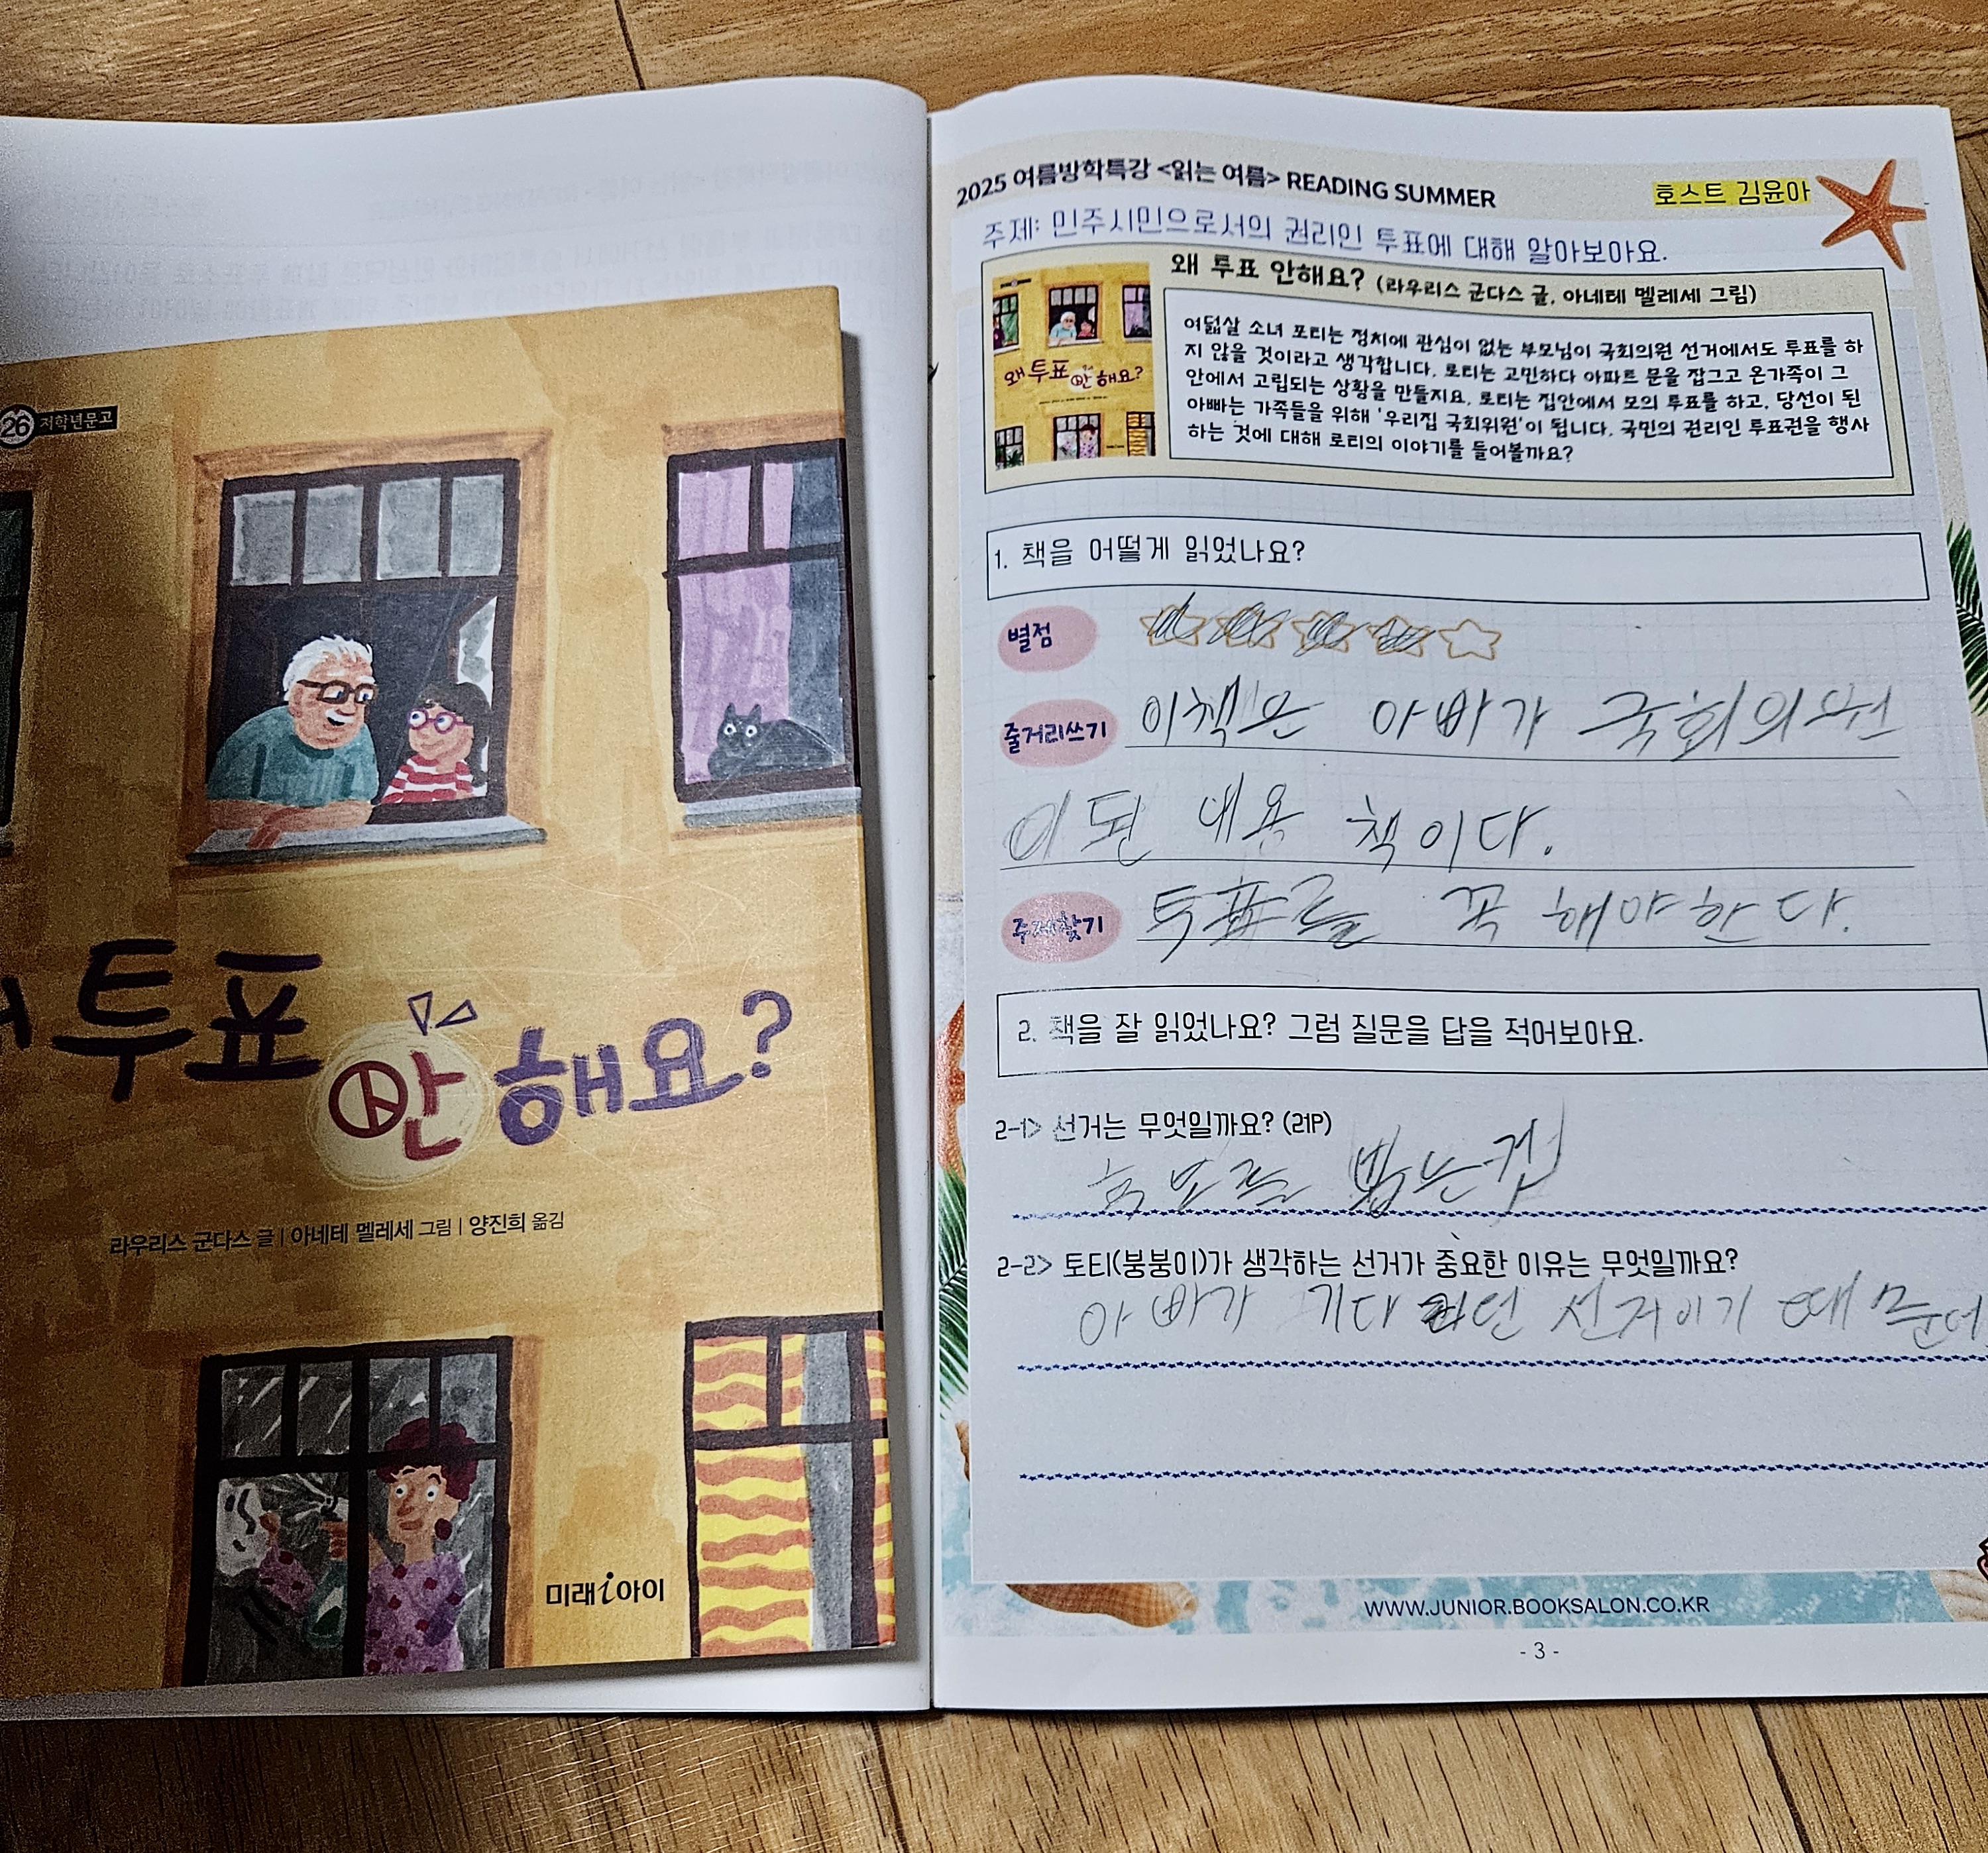 26 저학년문고
투표 안 해요?
라우리스 군다스 글 | 아네테 멜레세 그림 | 양진희 옮김
미래i아이
2025 여름방학특강 <읽는 여름> READING SUMMER
호스트 김윤아
주제: 민주시민으로서의 권리인 투표에 대해 알아보아요.
왜 투표 안해요? (라우리스 군다스 글, 아네테 멜레세 그림)
왜 투표 안 해요?
여덟살 소녀 포티는 정치에 관심이 없는 부모님이 국회의원 선거에서도 투표를 하
지 않을 것이라고 생각합니다. 로티는 고민하다 아파트 문을 잡그고 온가족이 그
안에서 고립되는 상황을 만들지요. 로티는 집안에서 모의 투표를 하고, 당선이 된
아빠는 가족들을 위해 '우리집 국회위원'이 됩니다. 국민의 권리인 투표권을 행사
하는 것에 대해 로티의 이야기를 들어볼까요?
1. 책을 어떻게 읽었나요?
별점
줄거리쓰기 이책은 아빠가 국회의원
이 된 내용 책이다.
주제찾기 투표를 꼭 해야한다.
2. 책을 잘 읽었나요? 그럼 질문을 답을 적어보아요.
2-1> 선거는 무엇일까요? (21P)
후보를 뽑는것
2-2> 토티(붕붕이)가 생각하는 선거가 중요한 이유는 무엇일까요?
아빠가 기다리던 선거이기 때문에
WWW.JUNIOR.BOOKSALON.CO.KR
- 3 -